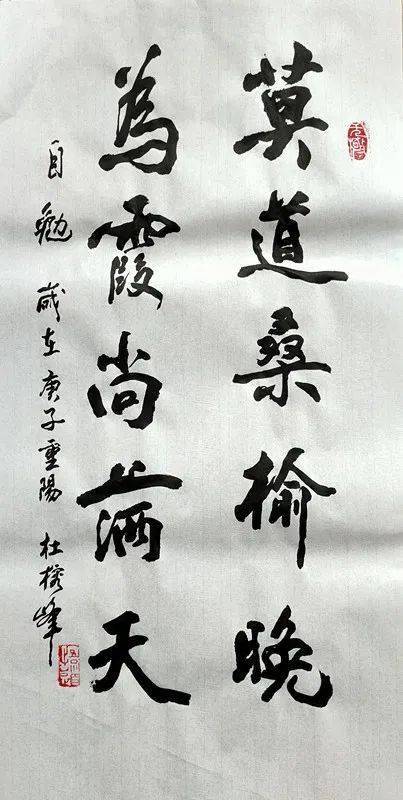 莫道桑榆晚
為霞尚滿天
自勉 歲在庚子重陽 杜榕峰